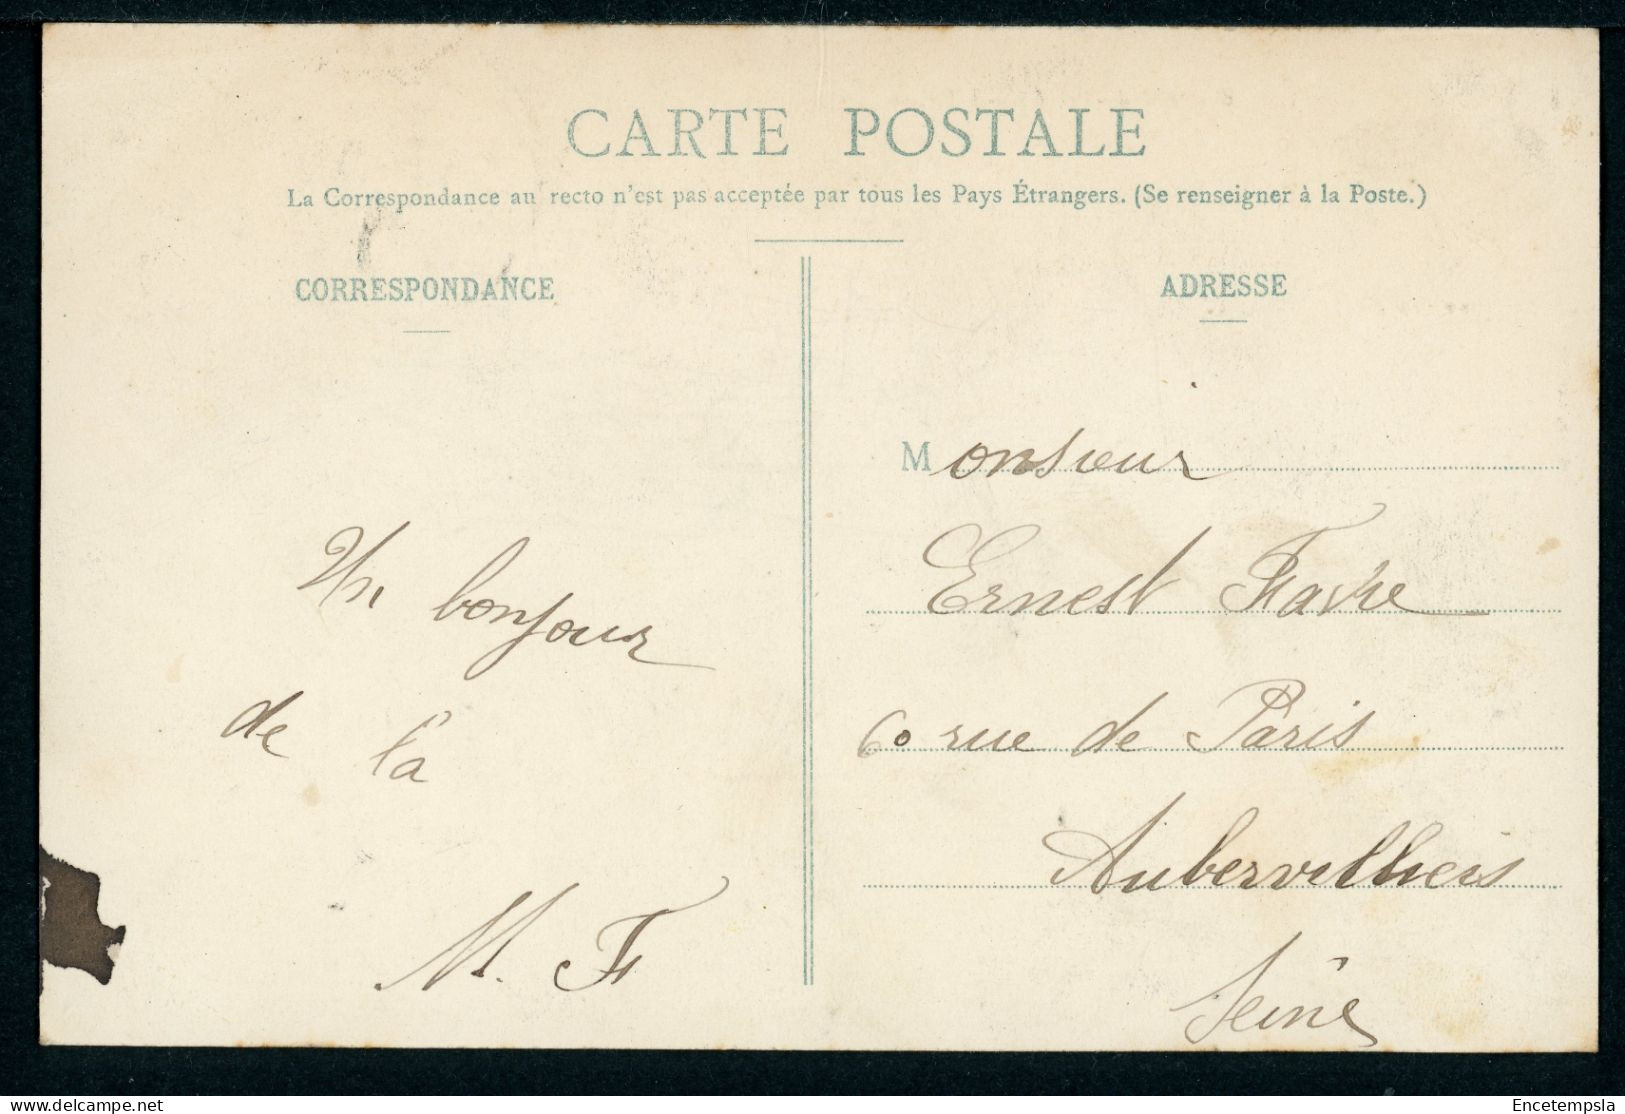 CARTE POSTALE
La Correspondance au recto n'est pas acceptée par tous les Pays Étrangers. (Se renseigner à la Poste.)
CORRESPONDANCE
Un bonjour
de la
M. F
ADRESSE
Monsieur
Ernest Favre
60 rue de Paris
Aubervilliers
Seine
www.delcampe.net
Encetempsla